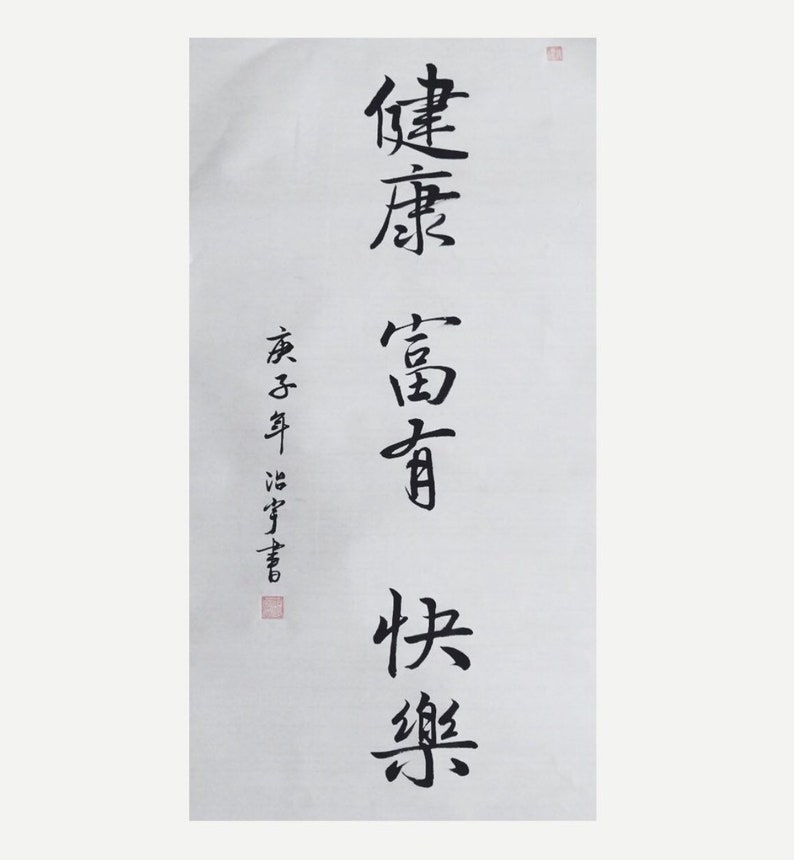 健康 富有 快樂
庚子年 治宇書